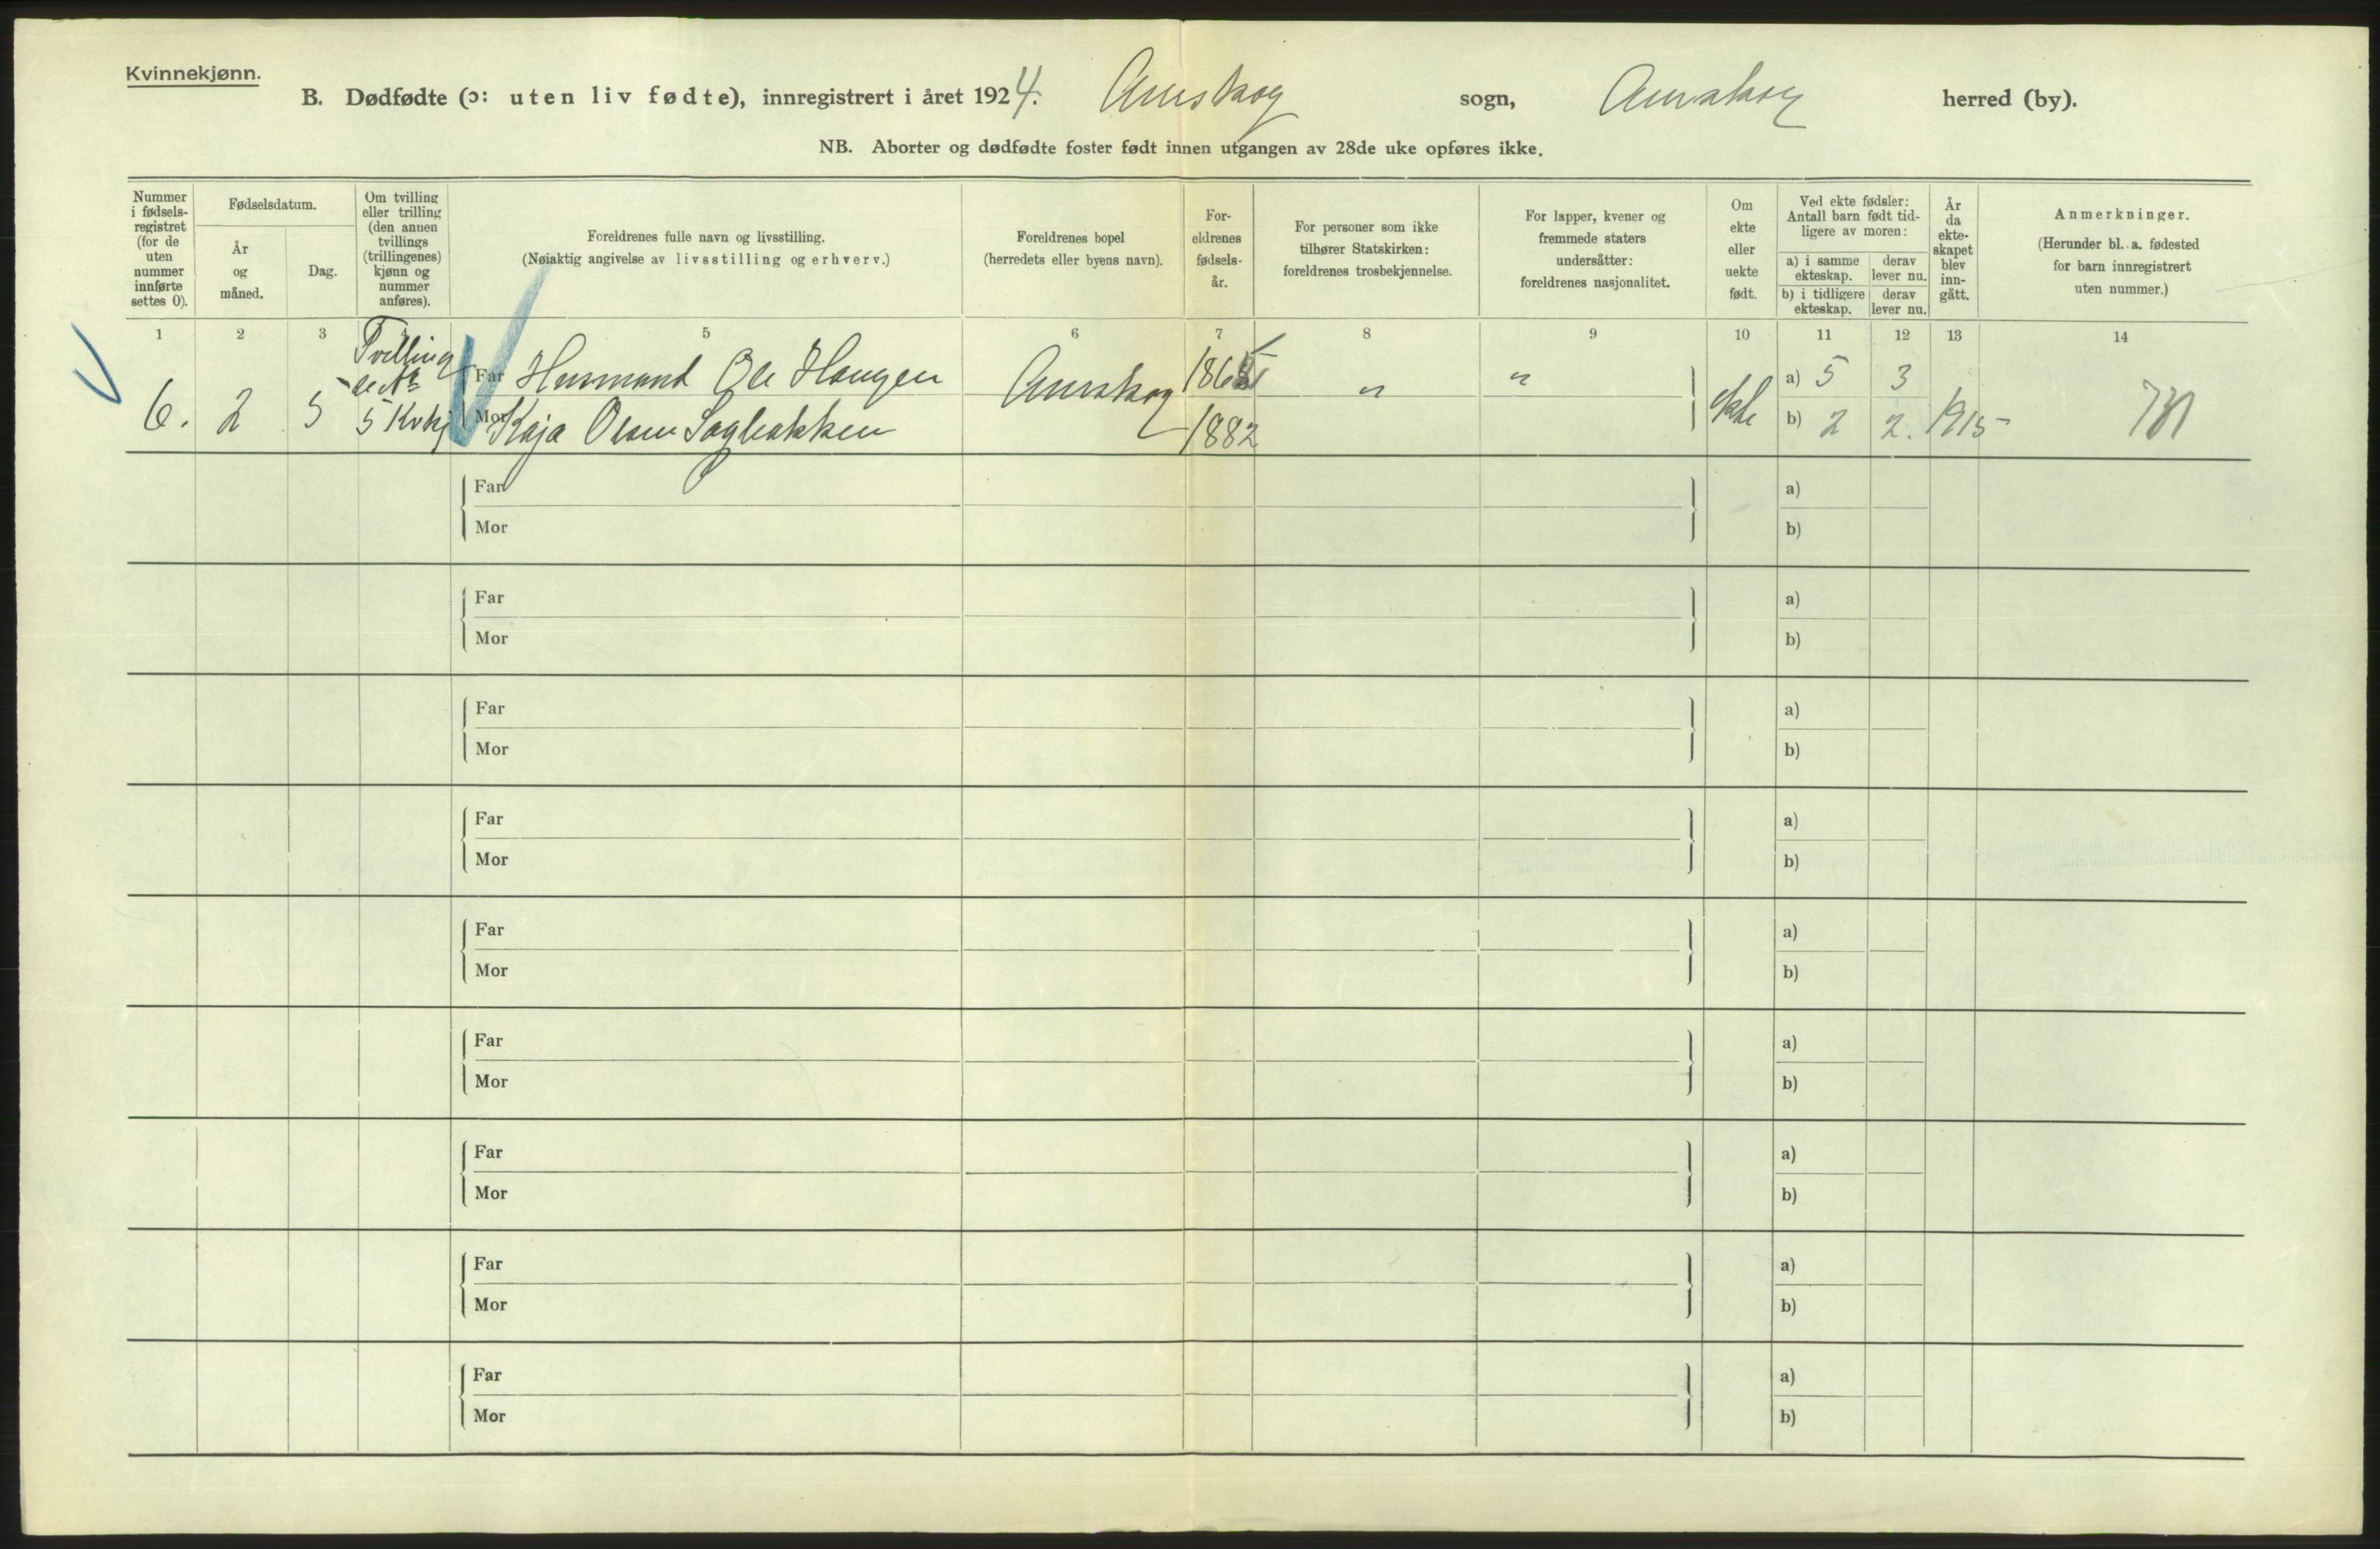 Kvinnekjønn.
B. Dødfødte (ɔ: uten liv fødte), innregistrert i året 1924. Aurskog sogn, Aurskog herred (by).
NB. Aborter og dødfødte foster født innen utgangen av 28de uke opføres ikke.
Nummer i fødsels-registret (for de uten nummer innførte settes 0).
Fødselsdatum.
År og måned.
Dag.
Om tvilling eller trilling (den annen tvillings (trillingenes) kjønn og nummer anføres).
Foreldrenes fulle navn og livsstilling.
(Nøiaktig angivelse av livsstilling og erhverv.)
Foreldrenes bopel
(herredets eller byens navn).
For-eldrenes fødsels-år.
For personer som ikke tilhører Statskirken: foreldrenes trosbekjennelse.
For lapper, kvener og fremmede staters undersåtter: foreldrenes nasjonalitet.
Om ekte eller uekte født.
Ved ekte fødsler: Antall barn født tid-ligere av moren:
a) i samme ekteskap. derav lever nu.
b) i tidligere ekteskap. derav lever nu.
År da ekte-skapet blev inn-gått.
Anmerkninger.
(Herunder bl. a. fødested for barn innregistrert uten nummer.)
1 2 3 4 5 6 7 8 9 10 11 12 13 14
6. 2 5 Tvilling
5 Kvkj
Far Husmand Ole Haugen Aurskog 186 " " ekte a) 5 3
Mor Kaja Olsen Sagbakken 1882 b) 2 2. 1915
Far a)
Mor b)
Far a)
Mor b)
Far a)
Mor b)
Far a)
Mor b)
Far a)
Mor b)
Far a)
Mor b)
Far a)
Mor b)
Far a)
Mor b)
Far a)
Mor b)